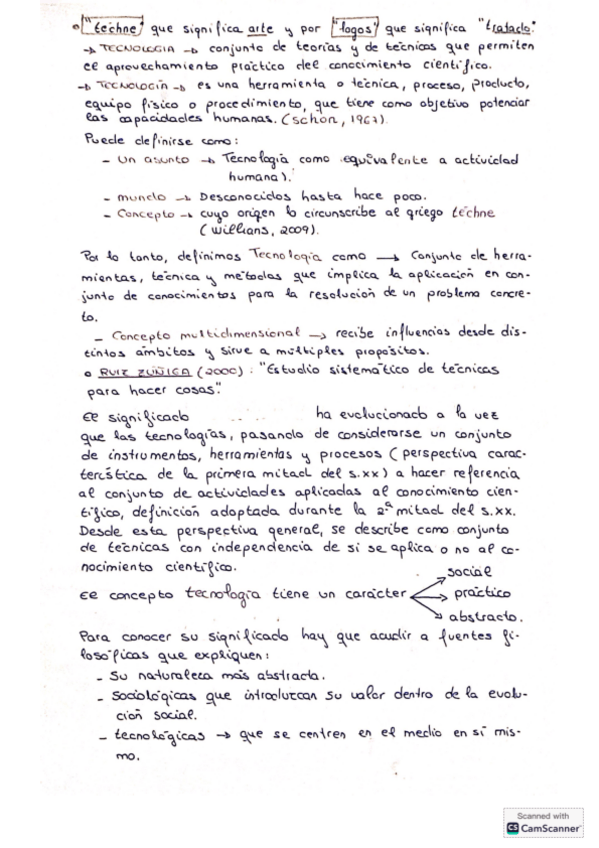 "techne" que significa arte y por "logos" que significa "tratado".
→ TECNOLOGIA → conjunto de teorías y de técnicas que permiten
el aprovechamiento práctico del conocimiento científico.
→ TECNOLOGÍA → es una herramienta o técnica, proceso, producto,
equipo físico o procedimiento, que tiene como objetivo potenciar
las capacidades humanas. (Schon, 1967).
Puede definirse como:
- Un asunto → Tecnología como equivalente a actividad
humana).
- mundo → Desconocidos hasta hace poco.
- Concepto → cuyo origen lo circunscribe al griego téchne
(Willians, 2009).
Por lo tanto, definimos Tecnologia como → Conjunto de herra-
mientas, técnica y métodos que implica la aplicación en con-
junto de conocimientos para la resolución de un problema concre-
to.
- Concepto multidimensional → recibe influencias desde dis-
tintos ámbitos y sirve a múltiples propósitos.
o RUIZ ZÚÑIGA (2000): "Estudio sistemático de técnicas
para hacer cosas".
El significado ha evolucionado a la vez
que las tecnologías, pasando de considerarse un conjunto
de instrumentos, herramientas y procesos (perspectiva carac-
terística de la primera mitad del s.xx) a hacer referencia
al conjunto de actividades aplicadas al conocimiento cien-
tífico, definición adoptada durante la 2ª mitad del s.xx.
Desde esta perspectiva general, se describe como conjunto
de técnicas con independencia de si se aplica o no al co-
nocimiento científico.
El concepto tecnología tiene un carácter
→ social
→ práctico
→ abstracto.
Para conocer su significado hay que acudir a fuentes fi-
losóficas que expliquen:
- Su naturaleza más abstracta.
- Sociológicas que introduzcan su valor dentro de la evolu-
ción social.
- tecnológicas → que se centren en el medio en sí mis-
mo.
Scanned with
CS CamScanner